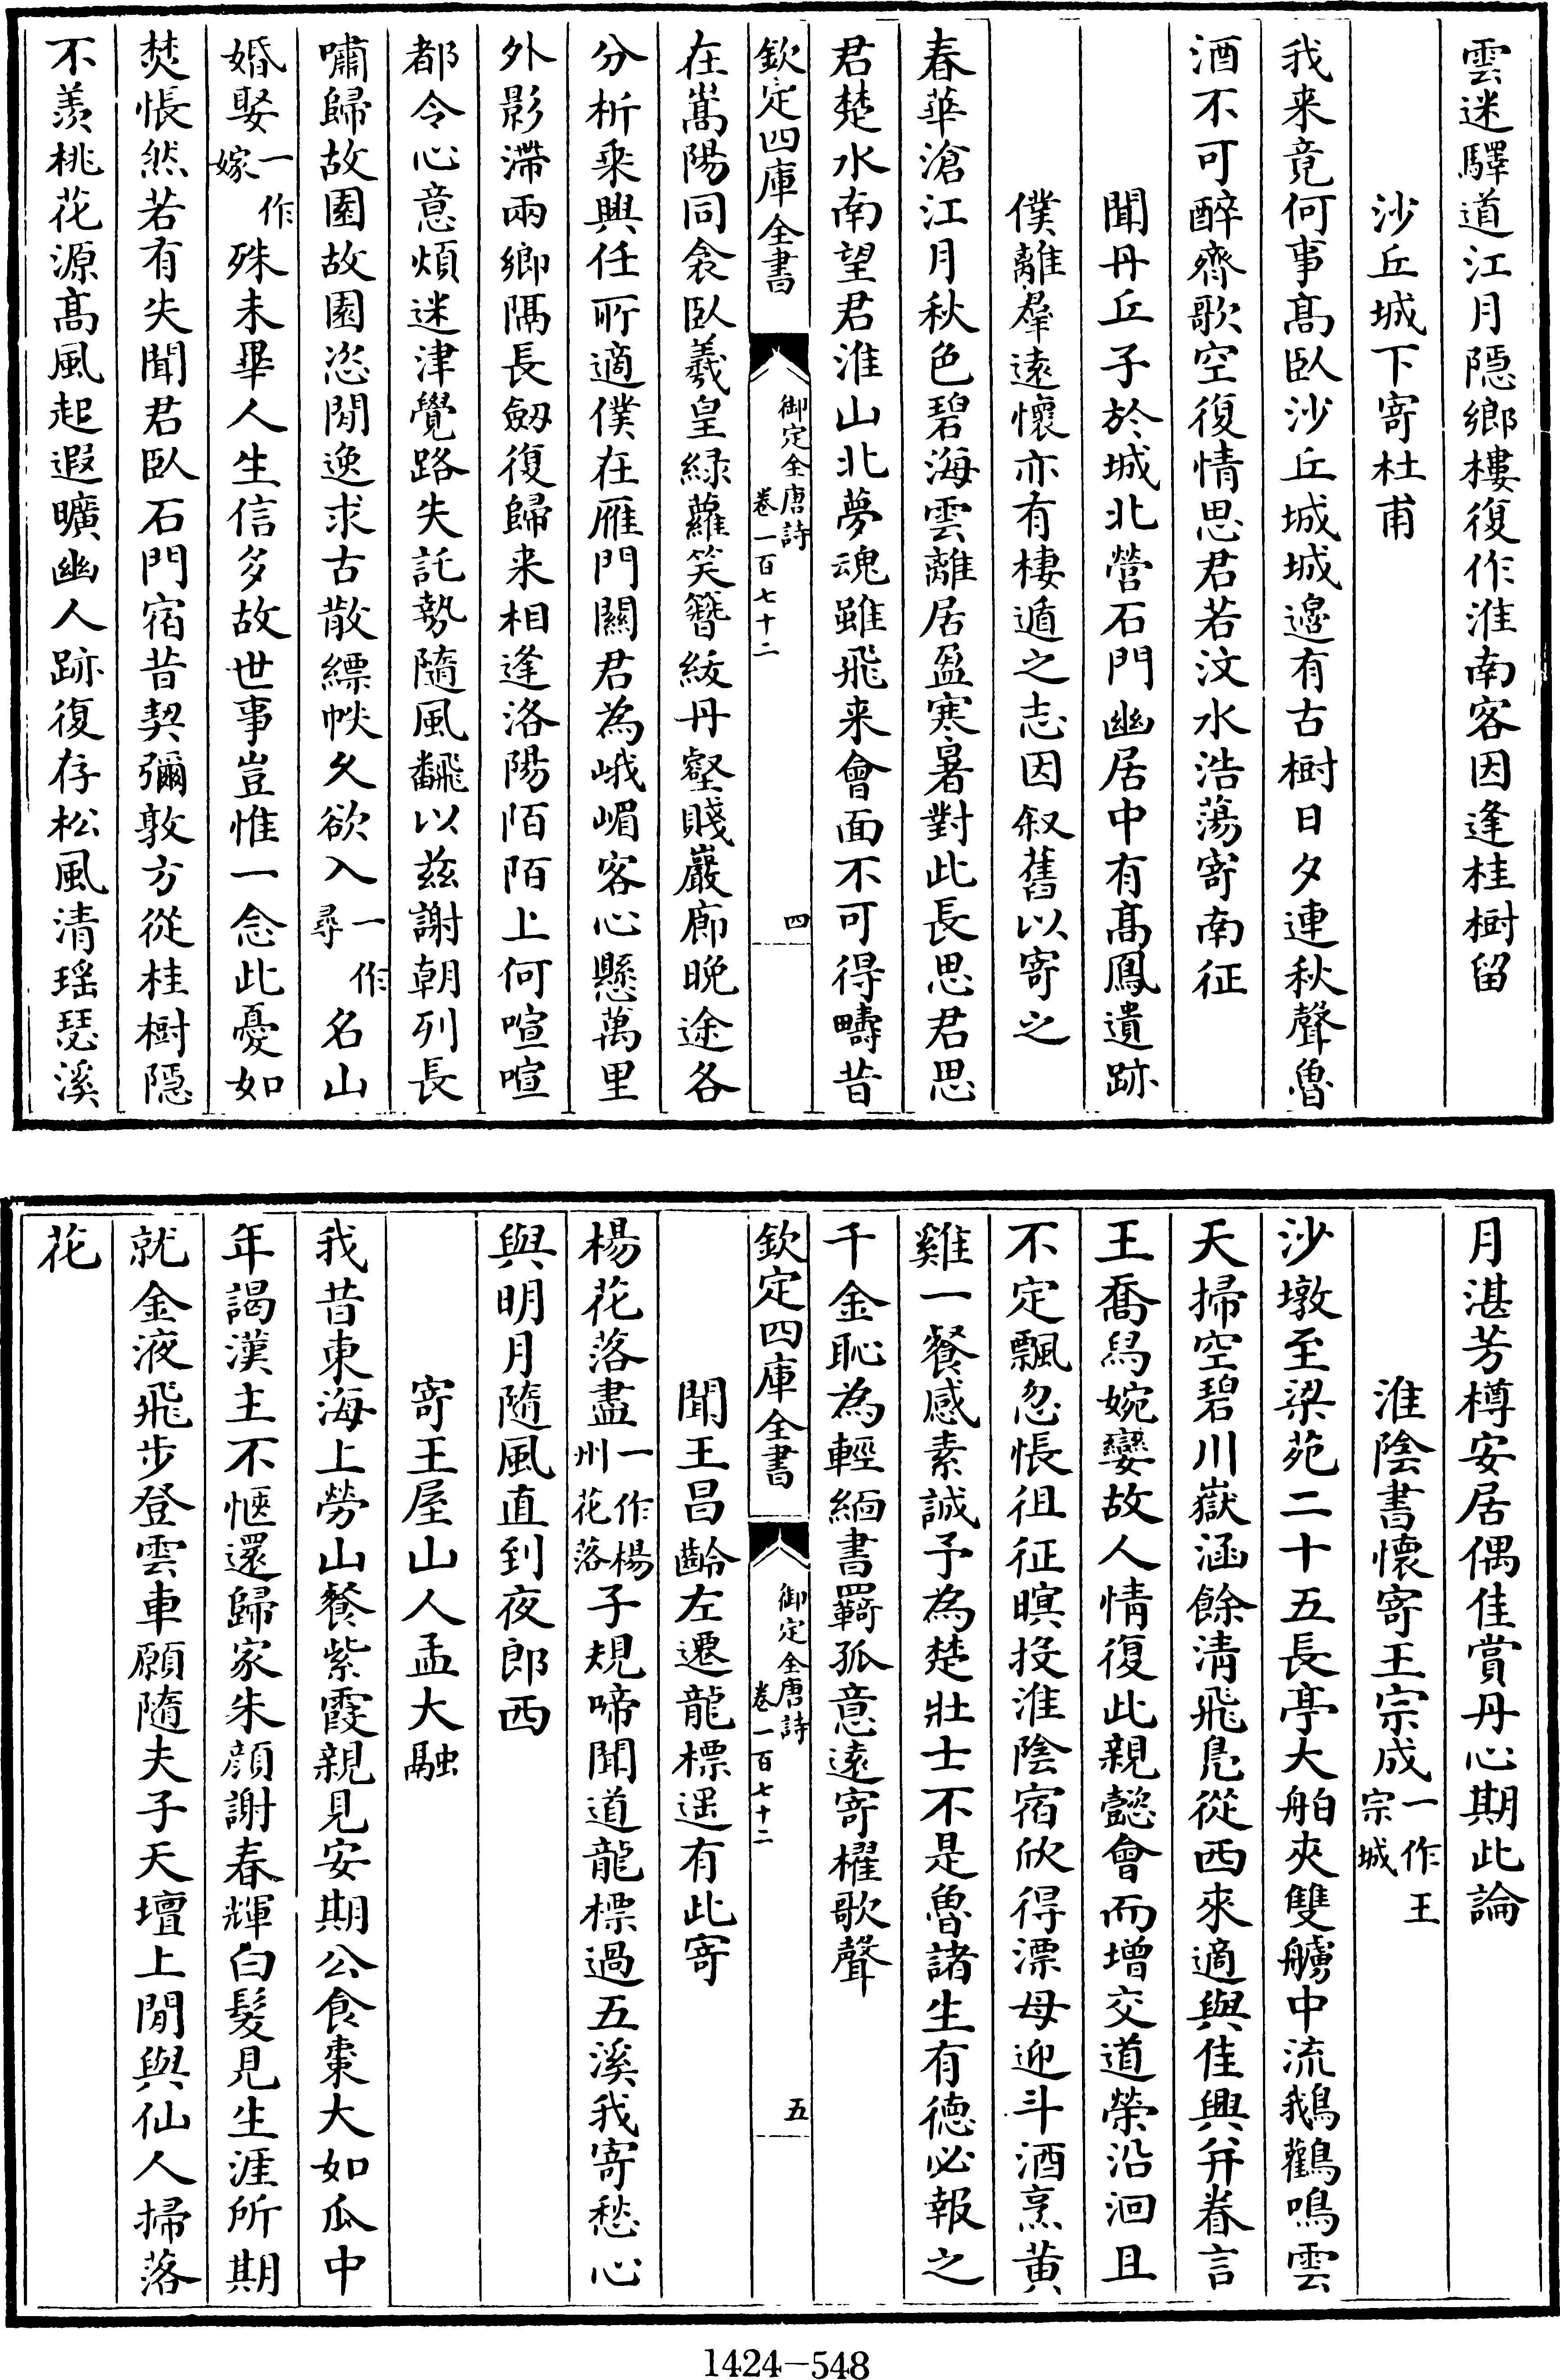 雲迷驛道江月隱鄉樓復作淮南客因逢桂樹留
沙丘城下寄杜甫
我来竟何事髙臥沙丘城城邉有古樹日夕連秋聲魯
酒不可醉齊歌空復情思君若汶水浩蕩寄南征
聞丹丘子於城北營石門幽居中有髙鳳遺跡
僕離羣遠懷亦有棲遁之志因叙舊以寄之
春華滄江月秋色碧海雲離居盈寒暑對此長思君思
君楚水南望君淮山北夢魂雖飛来會面不可得疇昔
欽定四庫全書
御定全唐詩
卷一百七十二
四
在嵩陽同衾臥羲皇緑蘿笑簪紱丹壑賤巖廊晩途各
分析乗興任所適僕在雁門闗君為峨嵋客心懸萬里
外影滯兩鄉隅長劔復歸来相逢洛陽陌陌上何喧喧
都令心意煩迷津覺路失託勢隨風飜以茲謝朝列長
嘯歸故園故園恣閒逸求古散縹帙乆欲入一作尋名山
婚娶一作嫁殊未畢人生信多故世事豈惟一念此憂如
焚悵然若有失聞君臥石門宿昔契彌敦方從桂樹隱
不羡桃花源髙風起遐曠幽人跡復存松風清瑶瑟溪
月湛芳樽安居偶佳賞丹心期此論
淮陰書懷寄王宗成一作王宗城
沙墩至梁苑二十五長亭大舶夾雙艣中流鵝鸛鳴雲
天掃空碧川嶽涵餘清飛鳬從西來適與佳興并眷言
王喬舄婉孌故人情復此親懿會而增交道榮沿洄且
不定飄忽悵徂征暝投淮陰宿欣得漂母迎斗酒烹黄
雞一餐感素誠予為楚壯士不是魯諸生有徳必報之
千金恥為輕緬書羇孤意遠寄櫂歌聲
欽定四庫全書
御定全唐詩
卷一百七十二
五
聞王昌齡左遷龍標遥有此寄
楊花落盡一作楊州花落子規啼聞道龍標過五溪我寄愁心
與明月隨風直到夜郎西
寄王屋山人孟大融
我昔東海上勞山餐紫霞親見安期公食棗大如瓜中
年謁漢主不愜還歸家朱顔謝春輝白髮見生涯所期
就金液飛步登雲車願隨夫子天壇上閒與仙人掃落
花
1424—548